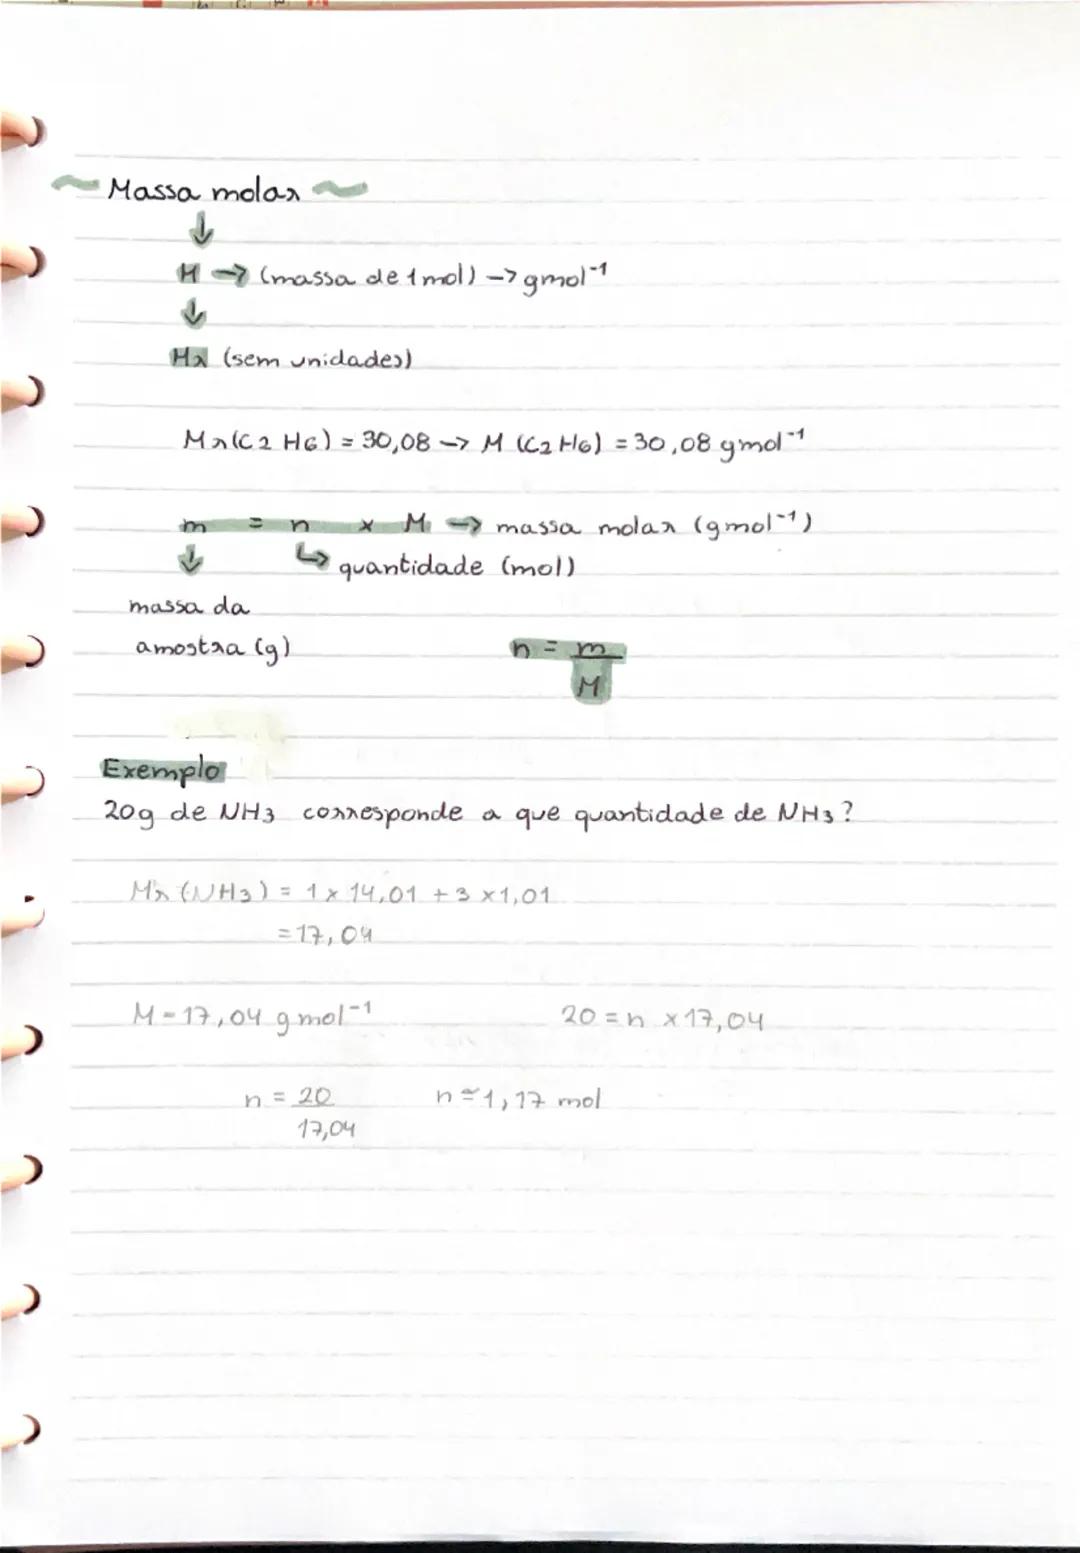 Massa molar
↓
M → (massa de 1 mol) → gmol⁻¹
↓
Mr (sem unidades)
Mr(C2 H6) = 30,08 → M (C2 H6) = 30,08 gmol⁻¹
m = n × M → massa molar (gmol⁻¹)
↓ ↳ quantidade (mol)
massa da
amostra (g) n = m
M
Exemplo
20g de NH3 corresponde a que quantidade de NH3?
Mr (NH3) = 1 × 14,01 + 3 ×1,01
= 17,04
M = 17,04 g mol⁻¹ 20 = n × 17,04
n = 20 n ≃ 1,17 mol
17,04